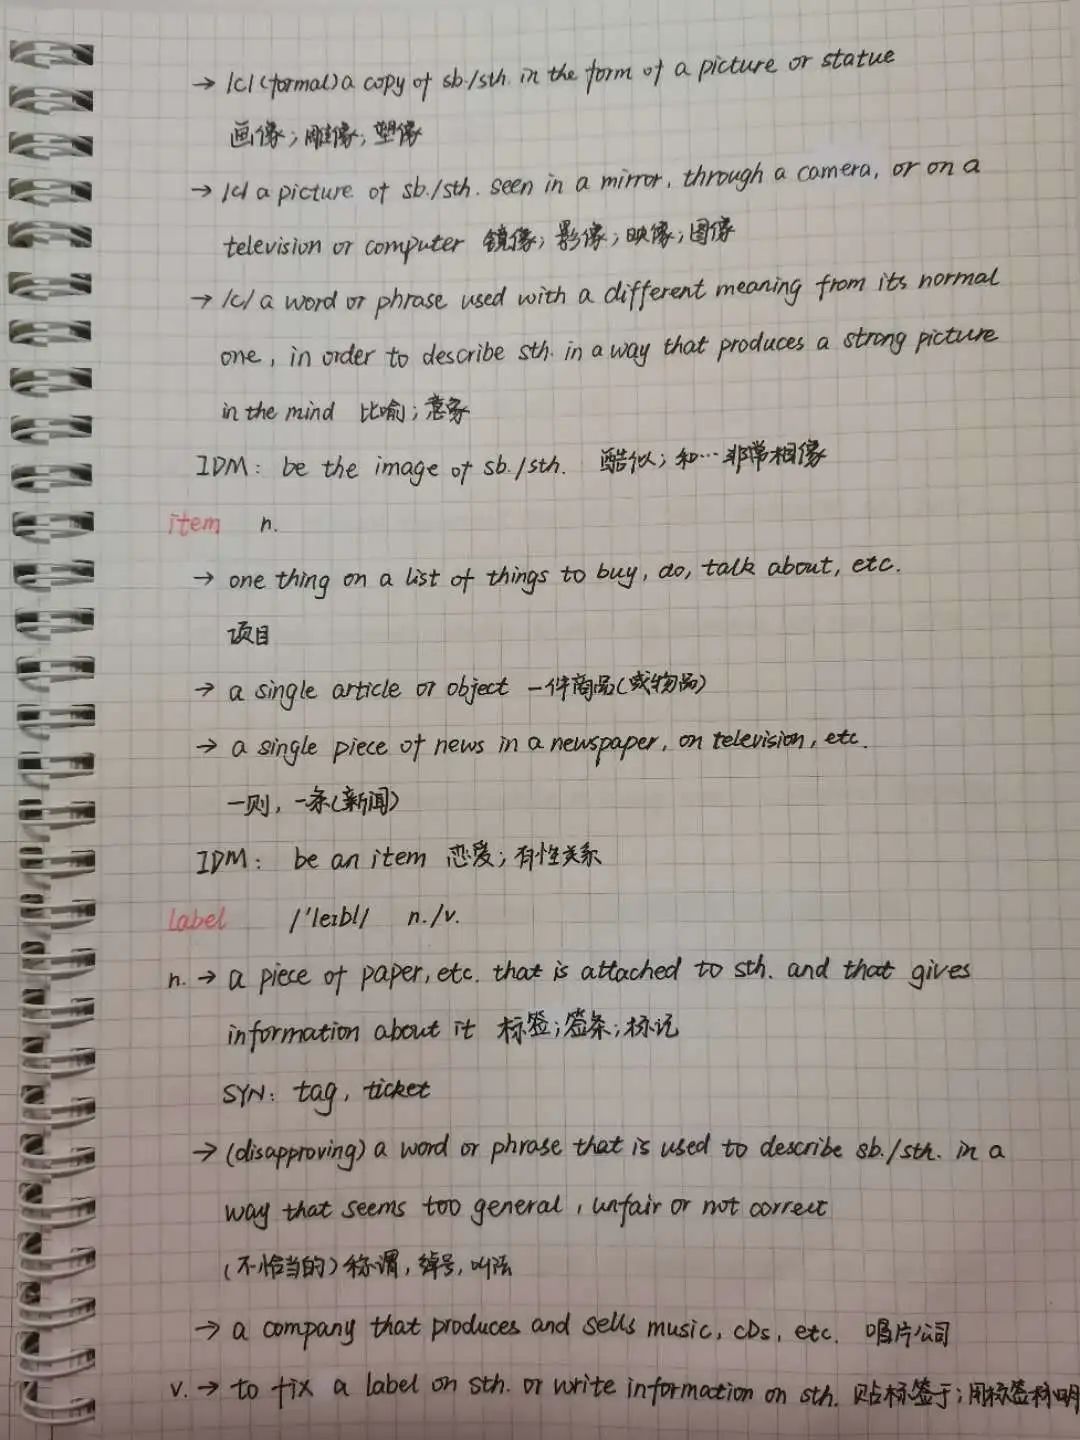 → /C/ (formal) a copy of sb./sth. in the form of a picture or statue
画像；雕像；塑像
→ /C/ a picture of sb./sth. seen in a mirror, through a camera, or on a
television or computer 镜像；影像；映像；图像
→ /C/ a word or phrase used with a different meaning from its normal
one, in order to describe sth. in a way that produces a strong picture
in the mind 比喻；意象
IDM: be the image of sb./sth. 酷似；和…非常相像
item n.
→ one thing on a list of things to buy, do, talk about, etc.
项目
→ a single article or object 一件商品(或物品)
→ a single piece of news in a newspaper, on television, etc.
一则，一条(新闻)
IDM: be an item 恋爱；有性关系
label /'leɪbl/ n./v.
n. → a piece of paper, etc. that is attached to sth. and that gives
information about it 标签；签条；标记
SYN: tag, ticket
→ (disapproving) a word or phrase that is used to describe sb./sth. in a
way that seems too general, unfair or not correct
(不恰当的)称谓，绰号，叫法
→ a company that produces and sells music, CDs, etc. 唱片公司
v. → to fix a label on sth. or write information on sth. 贴标签于；用标签标明